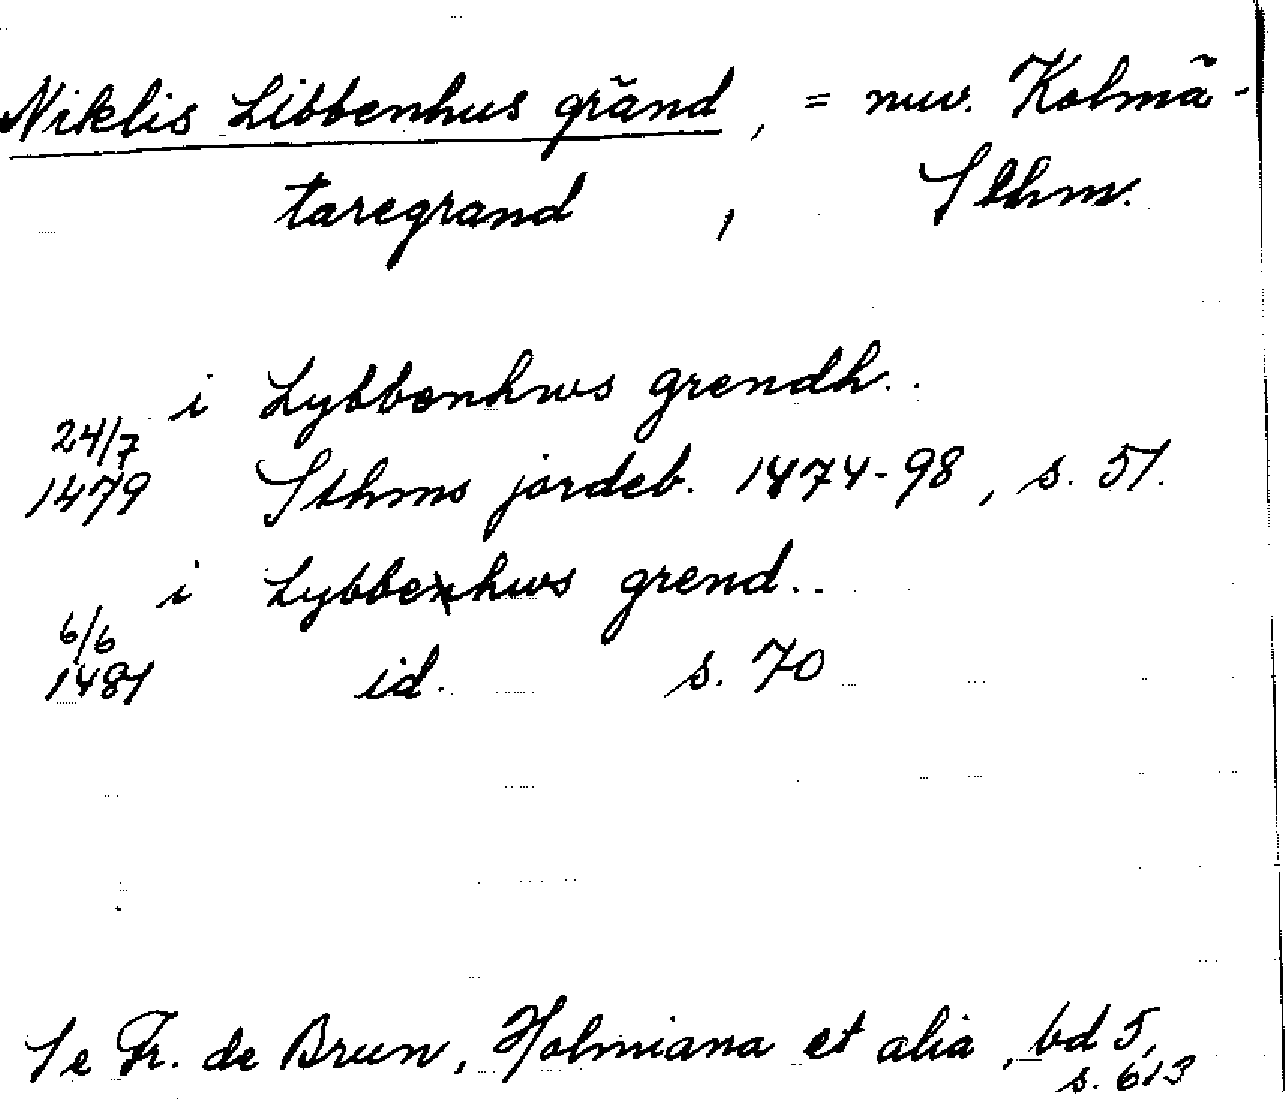 Niklis Libbenhus gränd, = nuv. Kolmä-
taregränd, Sthm.
i Lybbenhws grendh..
24/7
1479 Sthms jordeb. 1474-98, s. 51.
i Lybbenhws grend..
6/6
1481 id. s. 70
Se Fr. de Brun, Holmiana et alia, bd 5,
s. 613